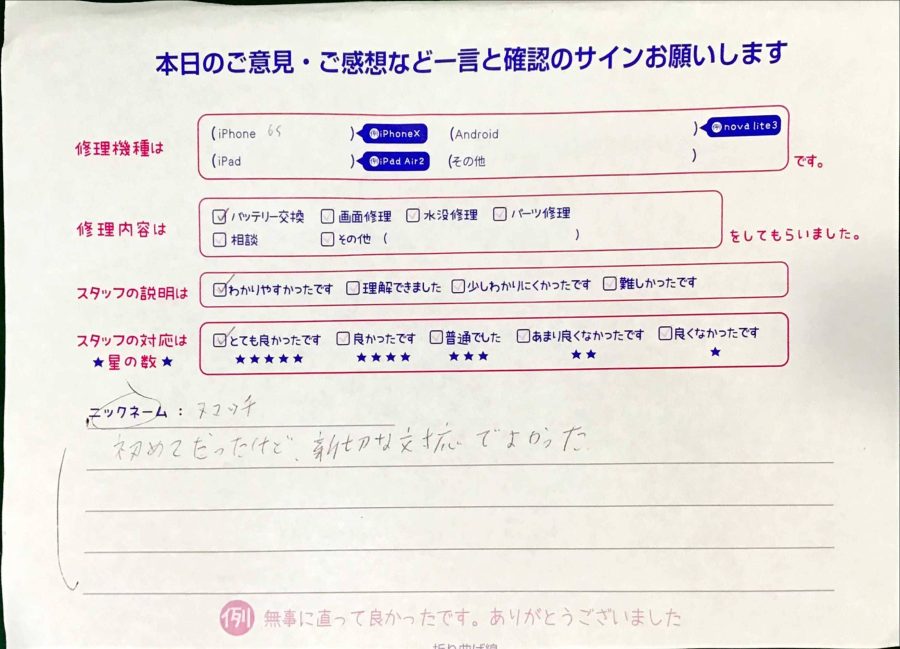 本日のご意見・ご感想など一言と確認のサインお願いします
修理機種は (iPhone 6S ) iPhoneX (Android ) nova lite3
(iPad ) iPad Air2 (その他 ) です。
修理内容は バッテリー交換 画面修理 水没修理 パーツ修理
相談 その他 ( ) をしてもらいました。
スタッフの説明は わかりやすかったです 理解できました 少しわかりにくかったです 難しかったです
スタッフの対応は とても良かったです 良かったです 普通でした あまり良くなかったです 良くなかったです
★星の数★ ★★★★★ ★★★★ ★★★ ★★ ★
ニックネーム : ヌマッチ
初めてだったけど、親切な対応でよかった
例 無事に直って良かったです。ありがとうございました